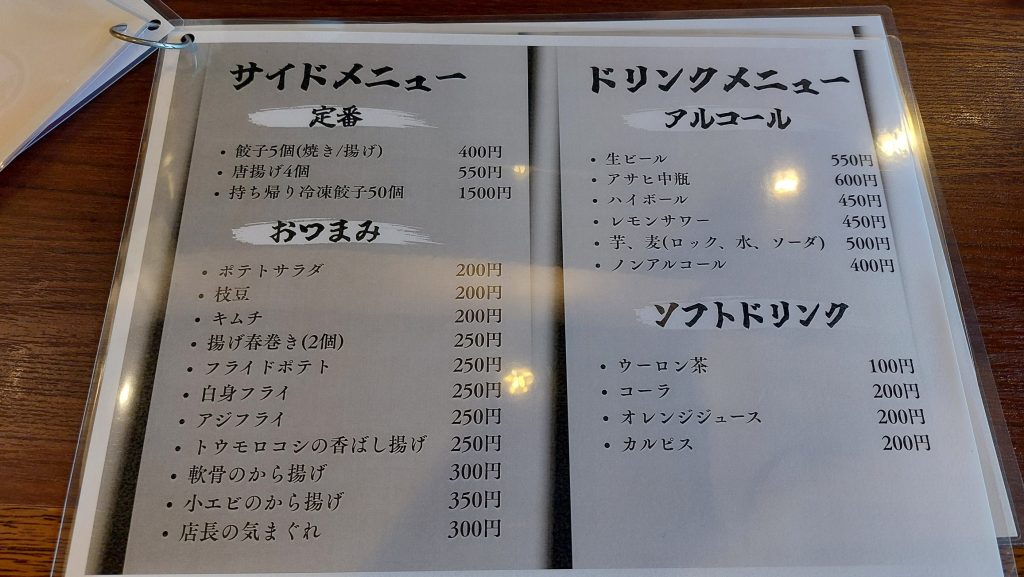 サイドメニュー
定番
・餃子5個(焼き/揚げ) 400円
・唐揚げ4個 550円
・持ち帰り冷凍餃子50個 1500円
おつまみ
・ポテトサラダ 200円
・枝豆 200円
・キムチ 200円
・揚げ春巻き(2個) 250円
・フライドポテト 250円
・白身フライ 250円
・アジフライ 250円
・トウモロコシの香ばし揚げ 250円
・軟骨のから揚げ 300円
・小エビのから揚げ 350円
・店長の気まぐれ 300円
ドリンクメニュー
アルコール
・生ビール 550円
・アサヒ中瓶 600円
・ハイボール 450円
・レモンサワー 450円
・芋、麦(ロック、水、ソーダ) 500円
・ノンアルコール 400円
ソフトドリンク
・ウーロン茶 100円
・コーラ 200円
・オレンジジュース 200円
・カルピス 200円